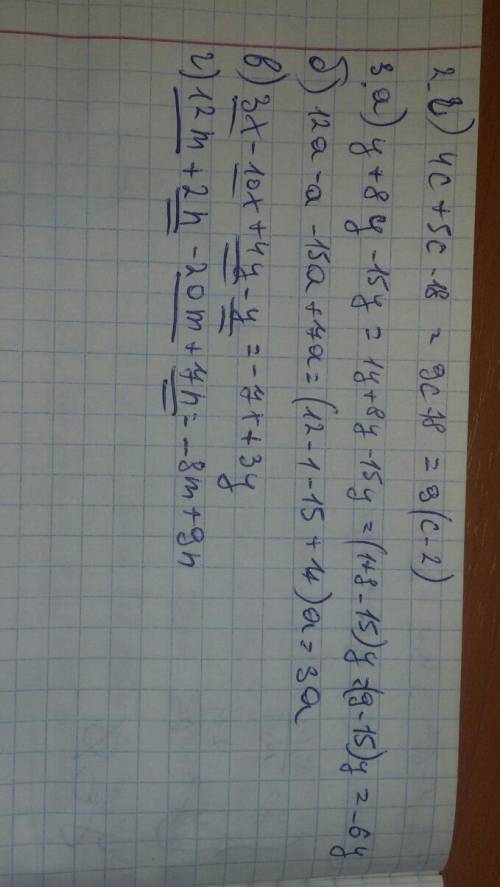 2 г) 4c + 5c - 18 = 9c - 18 = 9(c - 2)
3 а) y + 8y - 15y = 1y + 8y - 15y = (1 + 8 - 15)y = (9 - 15)y = -6y
б) 12a - a - 15a + 7a = (12 - 1 - 15 + 7)a = 3a
в) 3x - 10x + 4y - y = -7x + 3y
г) 12m + 2n - 20m + 7n = -8m + 9n